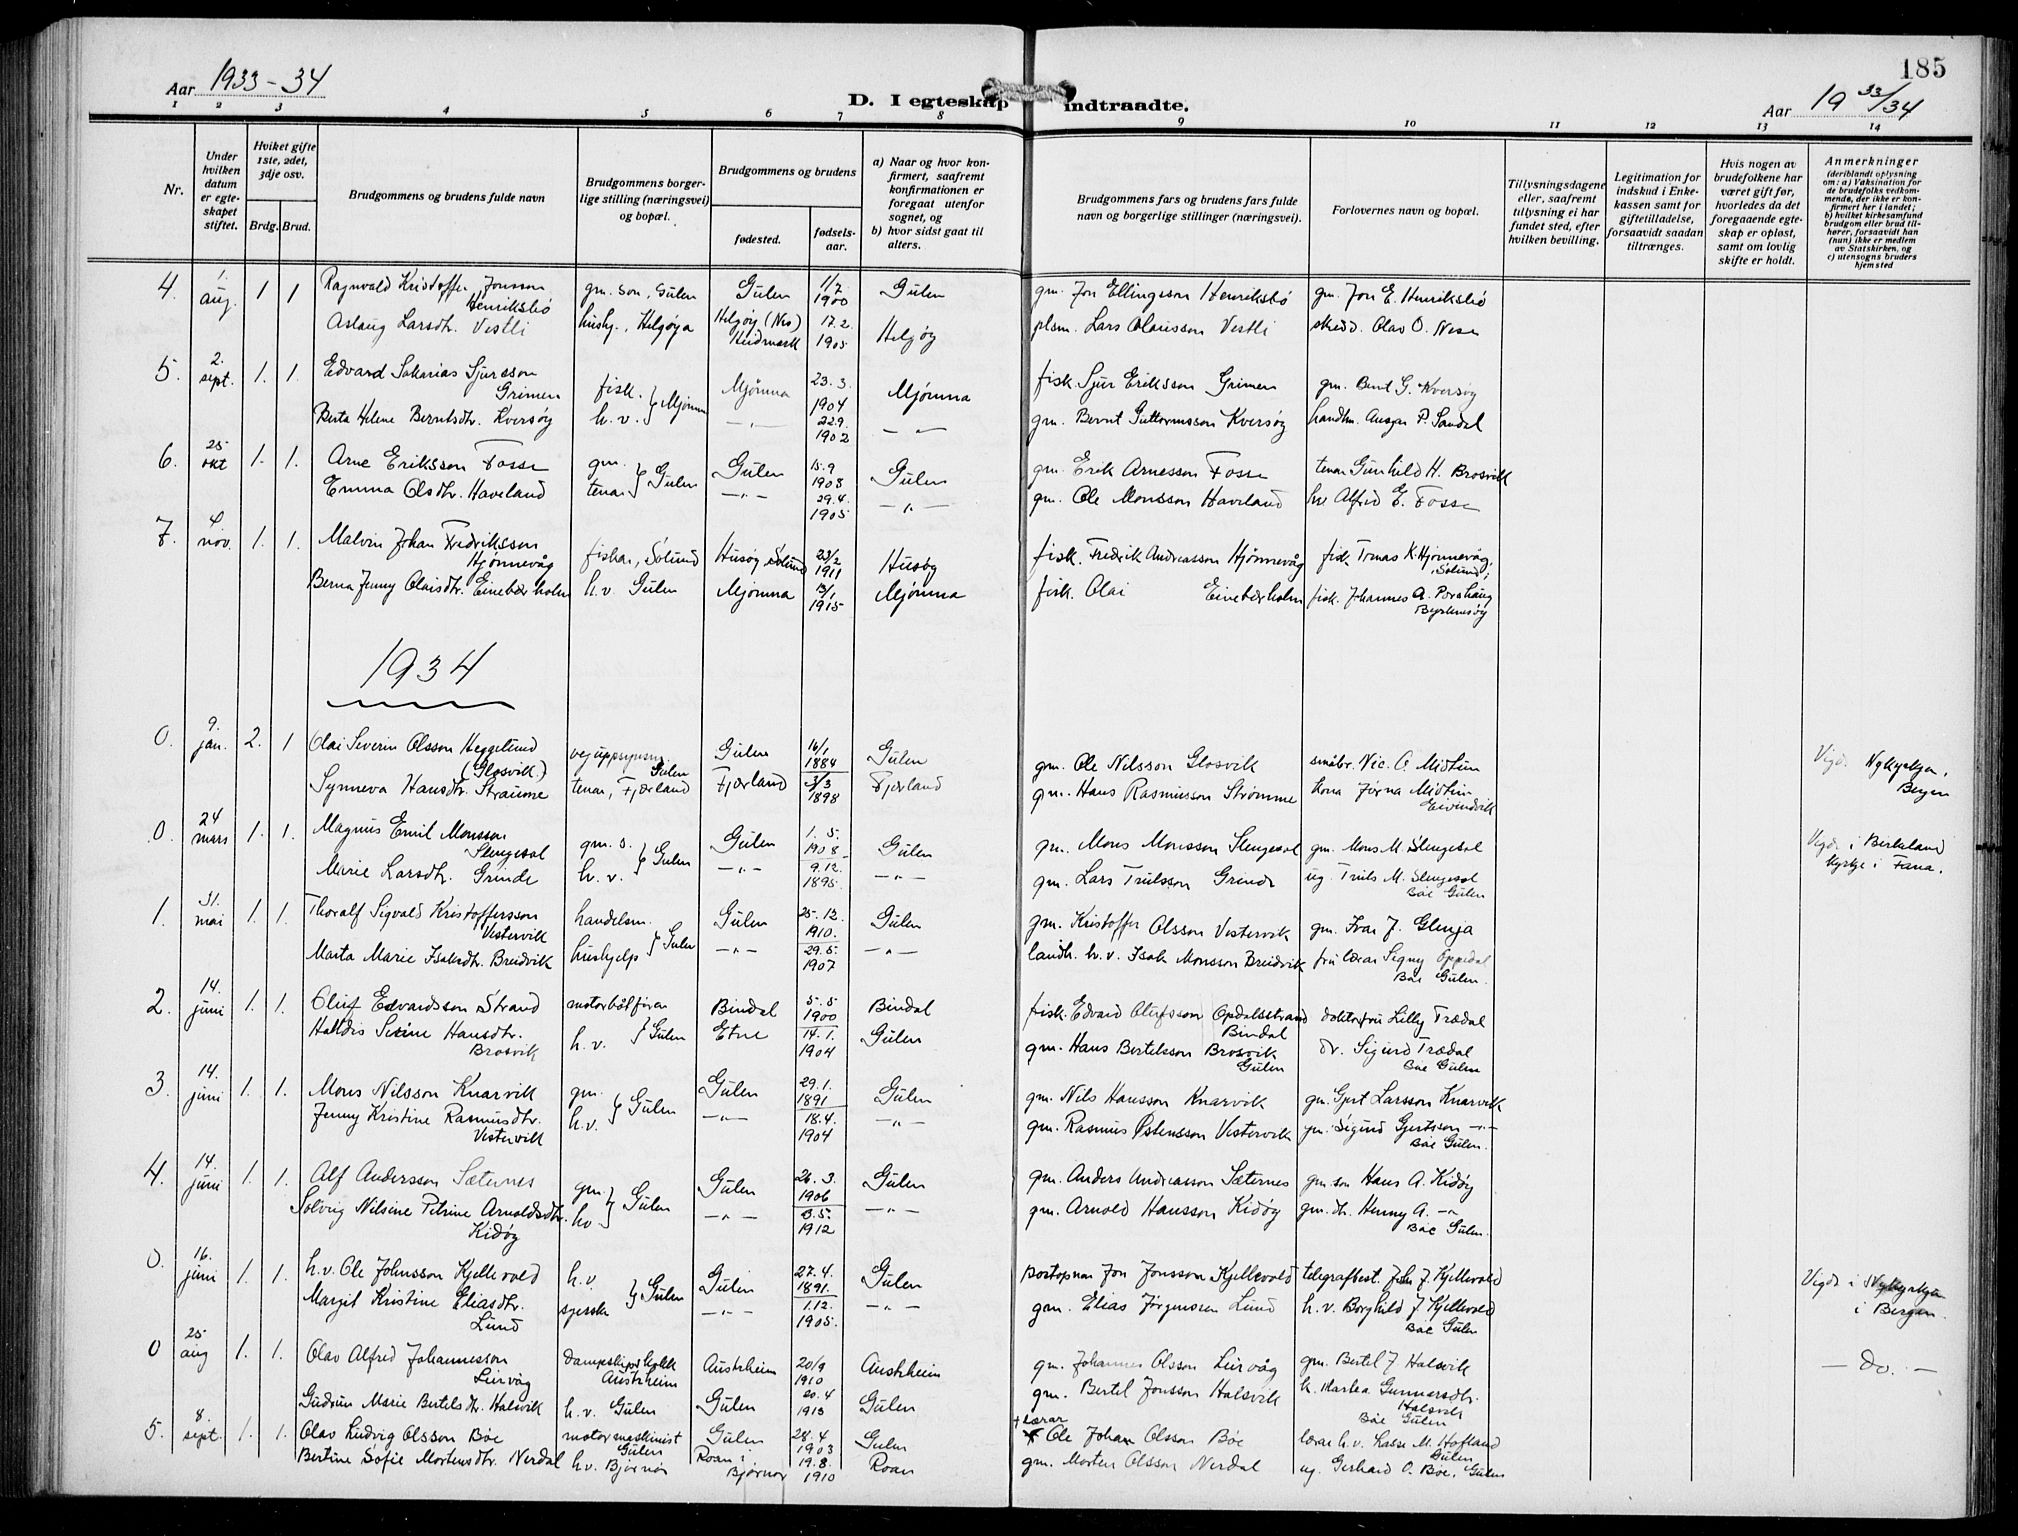 185
Aar 1933-34
D. I egteskap indtraadte.
Aar 1933/34
1 2 3 4 5 6 7 8 9 10 11 12 13 14
Nr.
Under hvilken datum er egteskapet stiftet.
Hviket gifte 1ste, 2det, 3dje osv.
Brdg. Brud.
Brudgommens og brudens fulde navn
Brudgommens borgerlige stilling (næringsvei) og bopæl.
Brudgommens og brudens
fødested.
fødselsaar.
a) Naar og hvor konfirmert, saafremt konfirmationen er foregaat utenfor sognet, og
b) hvor sidst gaat til alters.
Brudgommens fars og brudens fars fulde navn og borgerlige stillinger (næringsvei).
Forlovernes navn og bopæl.
Tillysningsdagene eller, saafremt tillysning ei har fundet sted, efter hvilken bevilling.
Legitimation for indskud i Enkekassen samt for giftetilladelse, forsaavidt saadan tiltrænges.
Hvis nogen av brudefolkene har været gift før, hvorledes da det foregaaende egteskap er opløst, samt om lovlig skifte er holdt.
Anmerkninger (deriblandt oplysning om: a) Vaksination for de brudefolks vedkommende, der ikke er konfirmert her i landet; b) hvilket kirkesamfund brudgom eller brud tilhører, forsaavidt han (hun) ikke er medlem av Statskirken, og c) utensogns bruders hjemsted
4. 1. aug. 1 1 Ragnvald Kristoffer Jonsson Henriksbø gm. son, Gulen Gulen 1/7 1900 Gulen gm. Jon Ellingsson Henriksbø gm. Jon E. Henriksbø
Aslaug Larsdtr. Vestli hushj., Helgøya Helgøy (Nes) Hedmark 17.2. 1905 Helgøy plsm. Lars Olausson Vestli skredd. Olav O. Nese
5. 2. sept. 1. 1. Edvard Sakarias Sjursson Grimen fisk. } Mjømna Mjømna 23.3. 1904 Mjømna fisk. Sjur Eriksson Grimen gm. Bernt G. Kversøy
Berta Helene Berntsdtr. Kversøy h.v. —"— 22.9. 1902 —"— gm. Bernt Guttormsson Kversøy handlm. Ansgar P. Sandal
6. 25 okt 1. 1. Arne Eriksson Fosse gm. } Gulen Gulen 15.9 1908 Gulen gm. Erik Arnesson Fosse tenar Gunhild H. Brosvik
Emma Olsdtr. Haveland tenar —"— 29.4. 1905 —"— gm. Ole Monsson Haveland hr Alfred E. Fosse
7. 4 nov. 1. 1. Malvin Johan Fredriksson Hjønnevåg fiskar, Solund Husøy Solund 23/2 1911 Husøy fisk. Fredrik Andreasson Hjønnevåg fisk. Tomas K. Hjønnevåg, Solund;
Berna Jenny Olaisdtr. Einebærholm h.v. Gulen Mjømna 13/1 1915 Mjømna fisk. Olai Einebærholm fisk. Johannes A. Porshaug Byrknesøy
1934
0. 9. jan. 2. 1 Olai Severin Olsson Heggelund (Glosvik) veguppsynsm Gulen Gulen 16/1 1884 Gulen gm. Ole Nilsson Glosvik småbr. Nic. O. Midtun Vigd. Nykyrkja, Bergen
Synneva Hansdtr. Straume tenar, Fjærland Fjærland 3/3 1898 Fjærland gm. Hans Rasmusson Strømme kona Jørna Midtun Eivindvik
0. 24 mars 1. 1. Magnus Emil Monsson Slengesol gm. s. } Gulen Gulen 1.5. 1908 Gulen gm. Mons Monsson Slengesol gm. Mons M. Slengesol Vigde i Birkeland kyrkje i Fana.
Marie Larsdtr. Grinde h.v. —"— 9.12. 1895. —"— gm. Lars Trulsson Grinde ug. Truls M. Slengesol Båe Gulen
1. 31. mai 1. 1. Thoralf Sigvald Kristoffersson Vestervik handelsm. } Gulen Gulen 25.12. 1910. Gulen gm. Kristoffer Olsson Vestervik gm. Ivar J. Glenja
Marta Marie Isaksdtr. Breidvik hushjelp —"— 29.5. 1907 —"— landh. h.v. Isak Monsson Breidvik fru lærar Signy Oppedal Båe Gulen.
2. 14. juni 1. 1. Oluf Edvardsson Strand motorbåtførar } Gulen Bindal 5.5 1900 Bindal fisk. Edvard Olufsson Opdalsstrand Bindal doktorfru Lilly Trædal
Halldis Serine Hansdtr. Brosvik h.v. Etne 14.1. 1904 Gulen gm. Hans Bertelsson Brosvik Gulen dr. Sigurd Trædal Båe Gulen
3. 14. juni 1. 1. Mons Nilsson Knarvik gm. } Gulen Gulen 29.1. 1891 Gulen gm. Nils Hansson Knarvik gm. Gjert Larsson Knarvik
Jenny Kristine Rasmusdtr. Vestervik h.v. —"— 18.4. 1904 —"— gm. Rasmus Østensson Vestervik gm. Sigurd Gjertsson —"— Båe Gulen.
4. 14. juni 1. 1. Alf Andersson Sæternes gm. } Gulen Gulen 26.3. 1906 Gulen gm. Anders Andreasson Sæternes gm. son Hans A. Kidøy
Solvig Nilsine Petrine Arnoldsdtr. Kidøy hv —"— 13.5. 1912 —"— gm. Arnold Hansson Kidøy gm. dtr. Henny A. —"— Båe Gulen.
0. 16. juni 1. 1. h.v. Ole Johnsson Kjellevold h.v. } Gulen Gulen 27.4. 1891. Gulen Postopnar Jon Jonsson Kjellevold telegrafbest. John J. Kjellevold Vigde i Nykyrkja i Bergen.
Margit Kristine Eliasdtr. Lund —"— 1.12. 1905. —"— gm. Elias Jørgensen Lund h.v. Borghild J Kjellevold Båe Gulen
0 25 aug 1. 1. Olav Alfred Johannesson Leirvåg Austrheim Austrheim 20/9 1910 Austrheim gm. Johannes Olsson Leirvåg gm. Bertel J Halsvik — Do. —
Gudrun Marie Bertelsdtr. Halsvik h.v. Gulen Gulen 20.4 1913 Gulen gm. Bertel Jonsson Halsvik h. Martea Gunnarsdtr. Halsvik Båe Gulen
5. 8. sept. 1. 1. Olav Ludvig Olsson Bøe motormaskinist Gulen Gulen 28.4 1903 Gulen + Lærar Ole Johan Olsson Bøe lærar h.v. Lasse M. Hofland Gulen
Bertine Sofie Mortensdtr. Nerdal h.v. Bjørnør Roan i Bjørnør 19.8. 1910 Roan gm. Morten Olsson Nerdal ug. Gerhard O. Bøe, Gulen